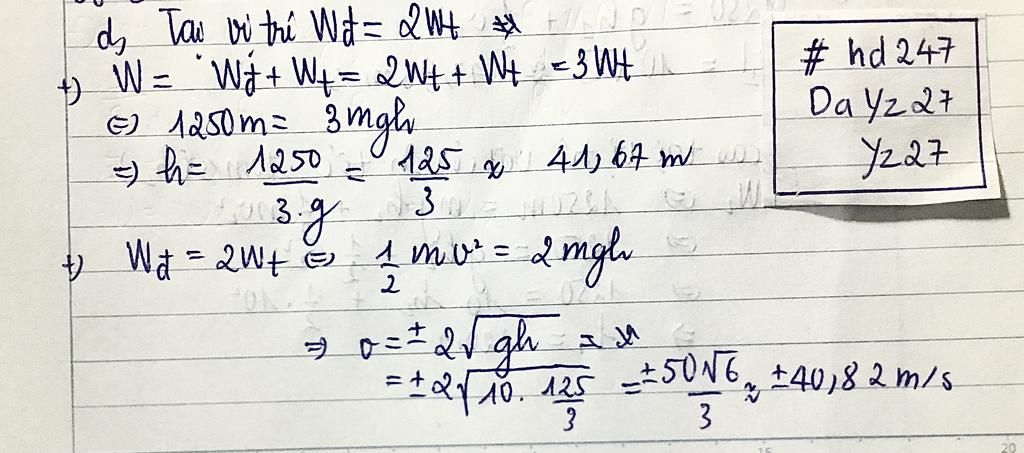 d, Tại vị trí Wđ = 2Wt
+) W = Wđ + Wt = 2Wt + Wt = 3Wt
⇔ 1250m = 3mgh
⇒ h = 1250/3.g = 125/3 ≈ 41,67 m
+) Wđ = 2Wt ⇔ 1/2 mv² = 2mgh
⇒ v = ± 2√gh =
= ± 2√10. 125/3 = ±50√6/3 ≈ ±40,82 m/s
# hd247
DaYz27
Yz27
15 20